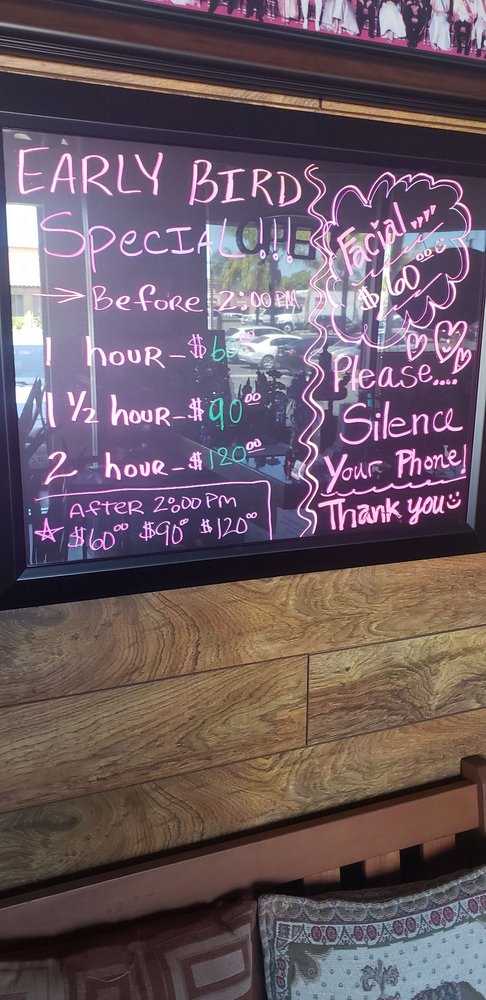 EARLY BIRD
SPECIAL!!!
→ Before 2:00 PM
1 hour - $60.00
1 ½ hour - $90.00
2 hour - $120.00
AFTER 2:00 PM
☆ $60.00 $90.0 $120.00
Facial....
$60.00
Please....
Silence
Your Phone!
Thank you
OPE